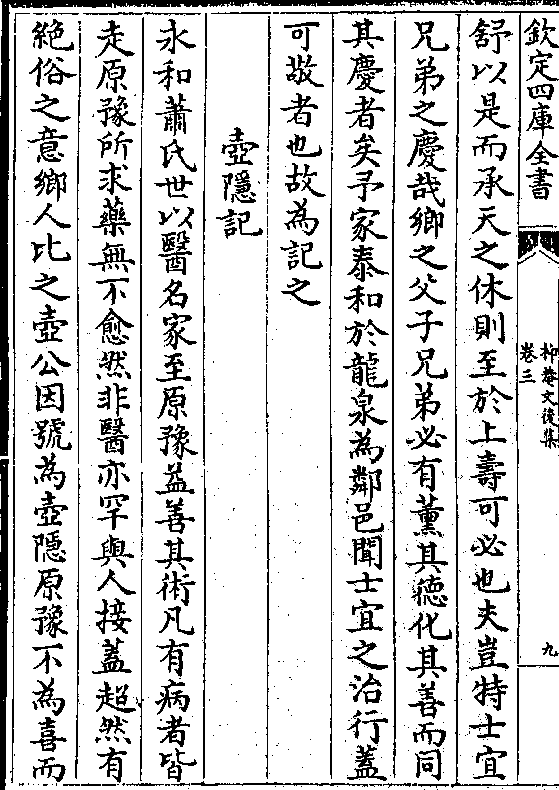 欽定四庫全書
抑菴文後集
卷三
九
舒以是而承天之休則至於上壽可必也夫豈特士宜
兄弟之慶哉鄉之父子兄弟必有薰其徳化其善而同
其慶者矣予家泰和於龍泉為鄰邑聞士宜之治行蓋
可敬者也故為記之
壺隱記
永和蕭氏世以醫名家至原豫益善其術凡有病者皆
走原豫所求藥無不愈然非醫亦罕與人接蓋超然有
絶俗之意鄉人比之壺公因號為壺隠原豫不為喜而